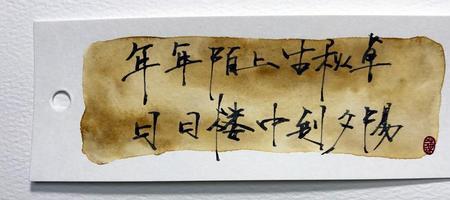 年年陌上生秋草
日日楼中到夕陽